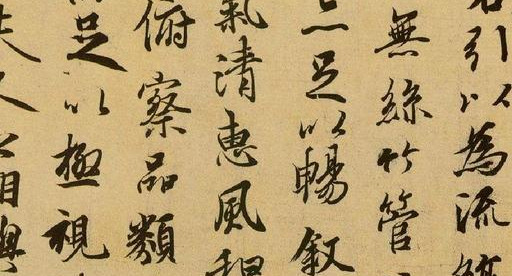 引以為流
無絲竹管
亦足以暢叙
氣清惠風和
俯察品類
足以極視
夫人之相與